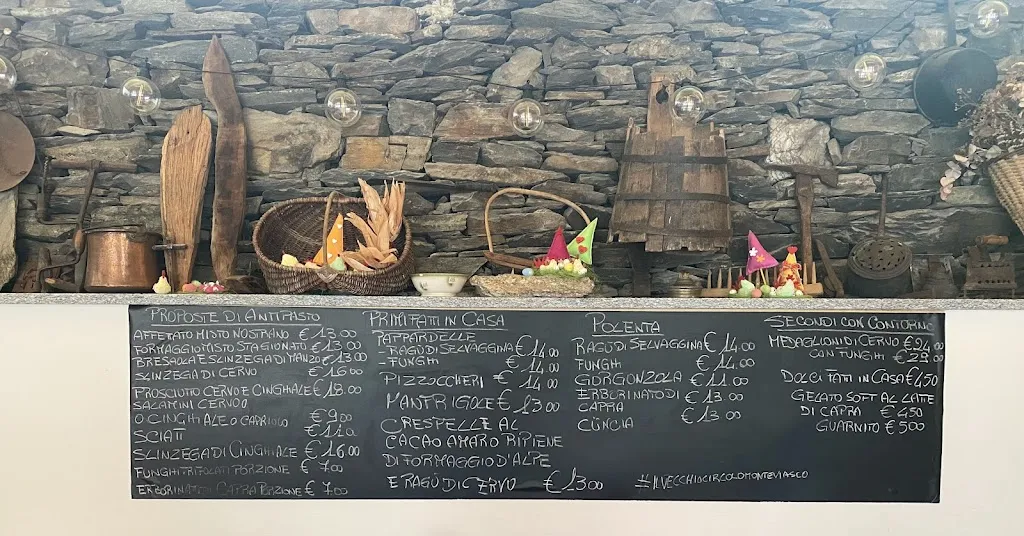 PROPOSTE DI ANTIPASTO
AFFETATO MISTO NOSTRANO € 13.00
FORMAGGIO MISTO STAGIONATO € 13.00
BRESAOLA E SLINZEGA DI MANZO € 13.00
SLINZEGA DI CERVO € 16.00
PROSCIUTTO CERVO E CINGHIALE € 18.00
SALAMINI CERVO O
O CINGHIALE O CAPRIOLO € 9.00
SCIATT
SLINZEGA DI CINGHIALE € 16.00
FUNGHI TRIFOLATI PORZIONE € 7.00
ERBORINATO CAPRA PORZIONE € 7.00
PRIMI FATI IN CASA
PAPPARDELLE
-RAGÙ DI SELVAGGINA € 14.00
-FUNGHI € 14.00
PIZZOCCHERI € 14.00
MANFRIGOLE € 13.00
CRESPELLE AL
CACAO AMARO RIPIENE
DI FORMAGGIO D'ALPE
E RAGÙ DI CERVO € 13.00
POLENTA
RAGÙ DI SELVAGGINA € 14.00
FUNGHI € 14.00
GORGONZOLA € 11.00
ERBORINATO DI € 13.00
CAPRA
CÜNCIA € 13.00
SECONDI CON CONTORNO
MEDAGLIONI DI CERVO € 24.00
CON FUNGHI € 28.00
DOLCI FATI IN CASA € 4,50
GELATO SOFT AL LATTE
DI CAPRA € 4,50
GUARNITO € 5.00
#ILVECCHIOCIRCOLOMONTEVIASCO